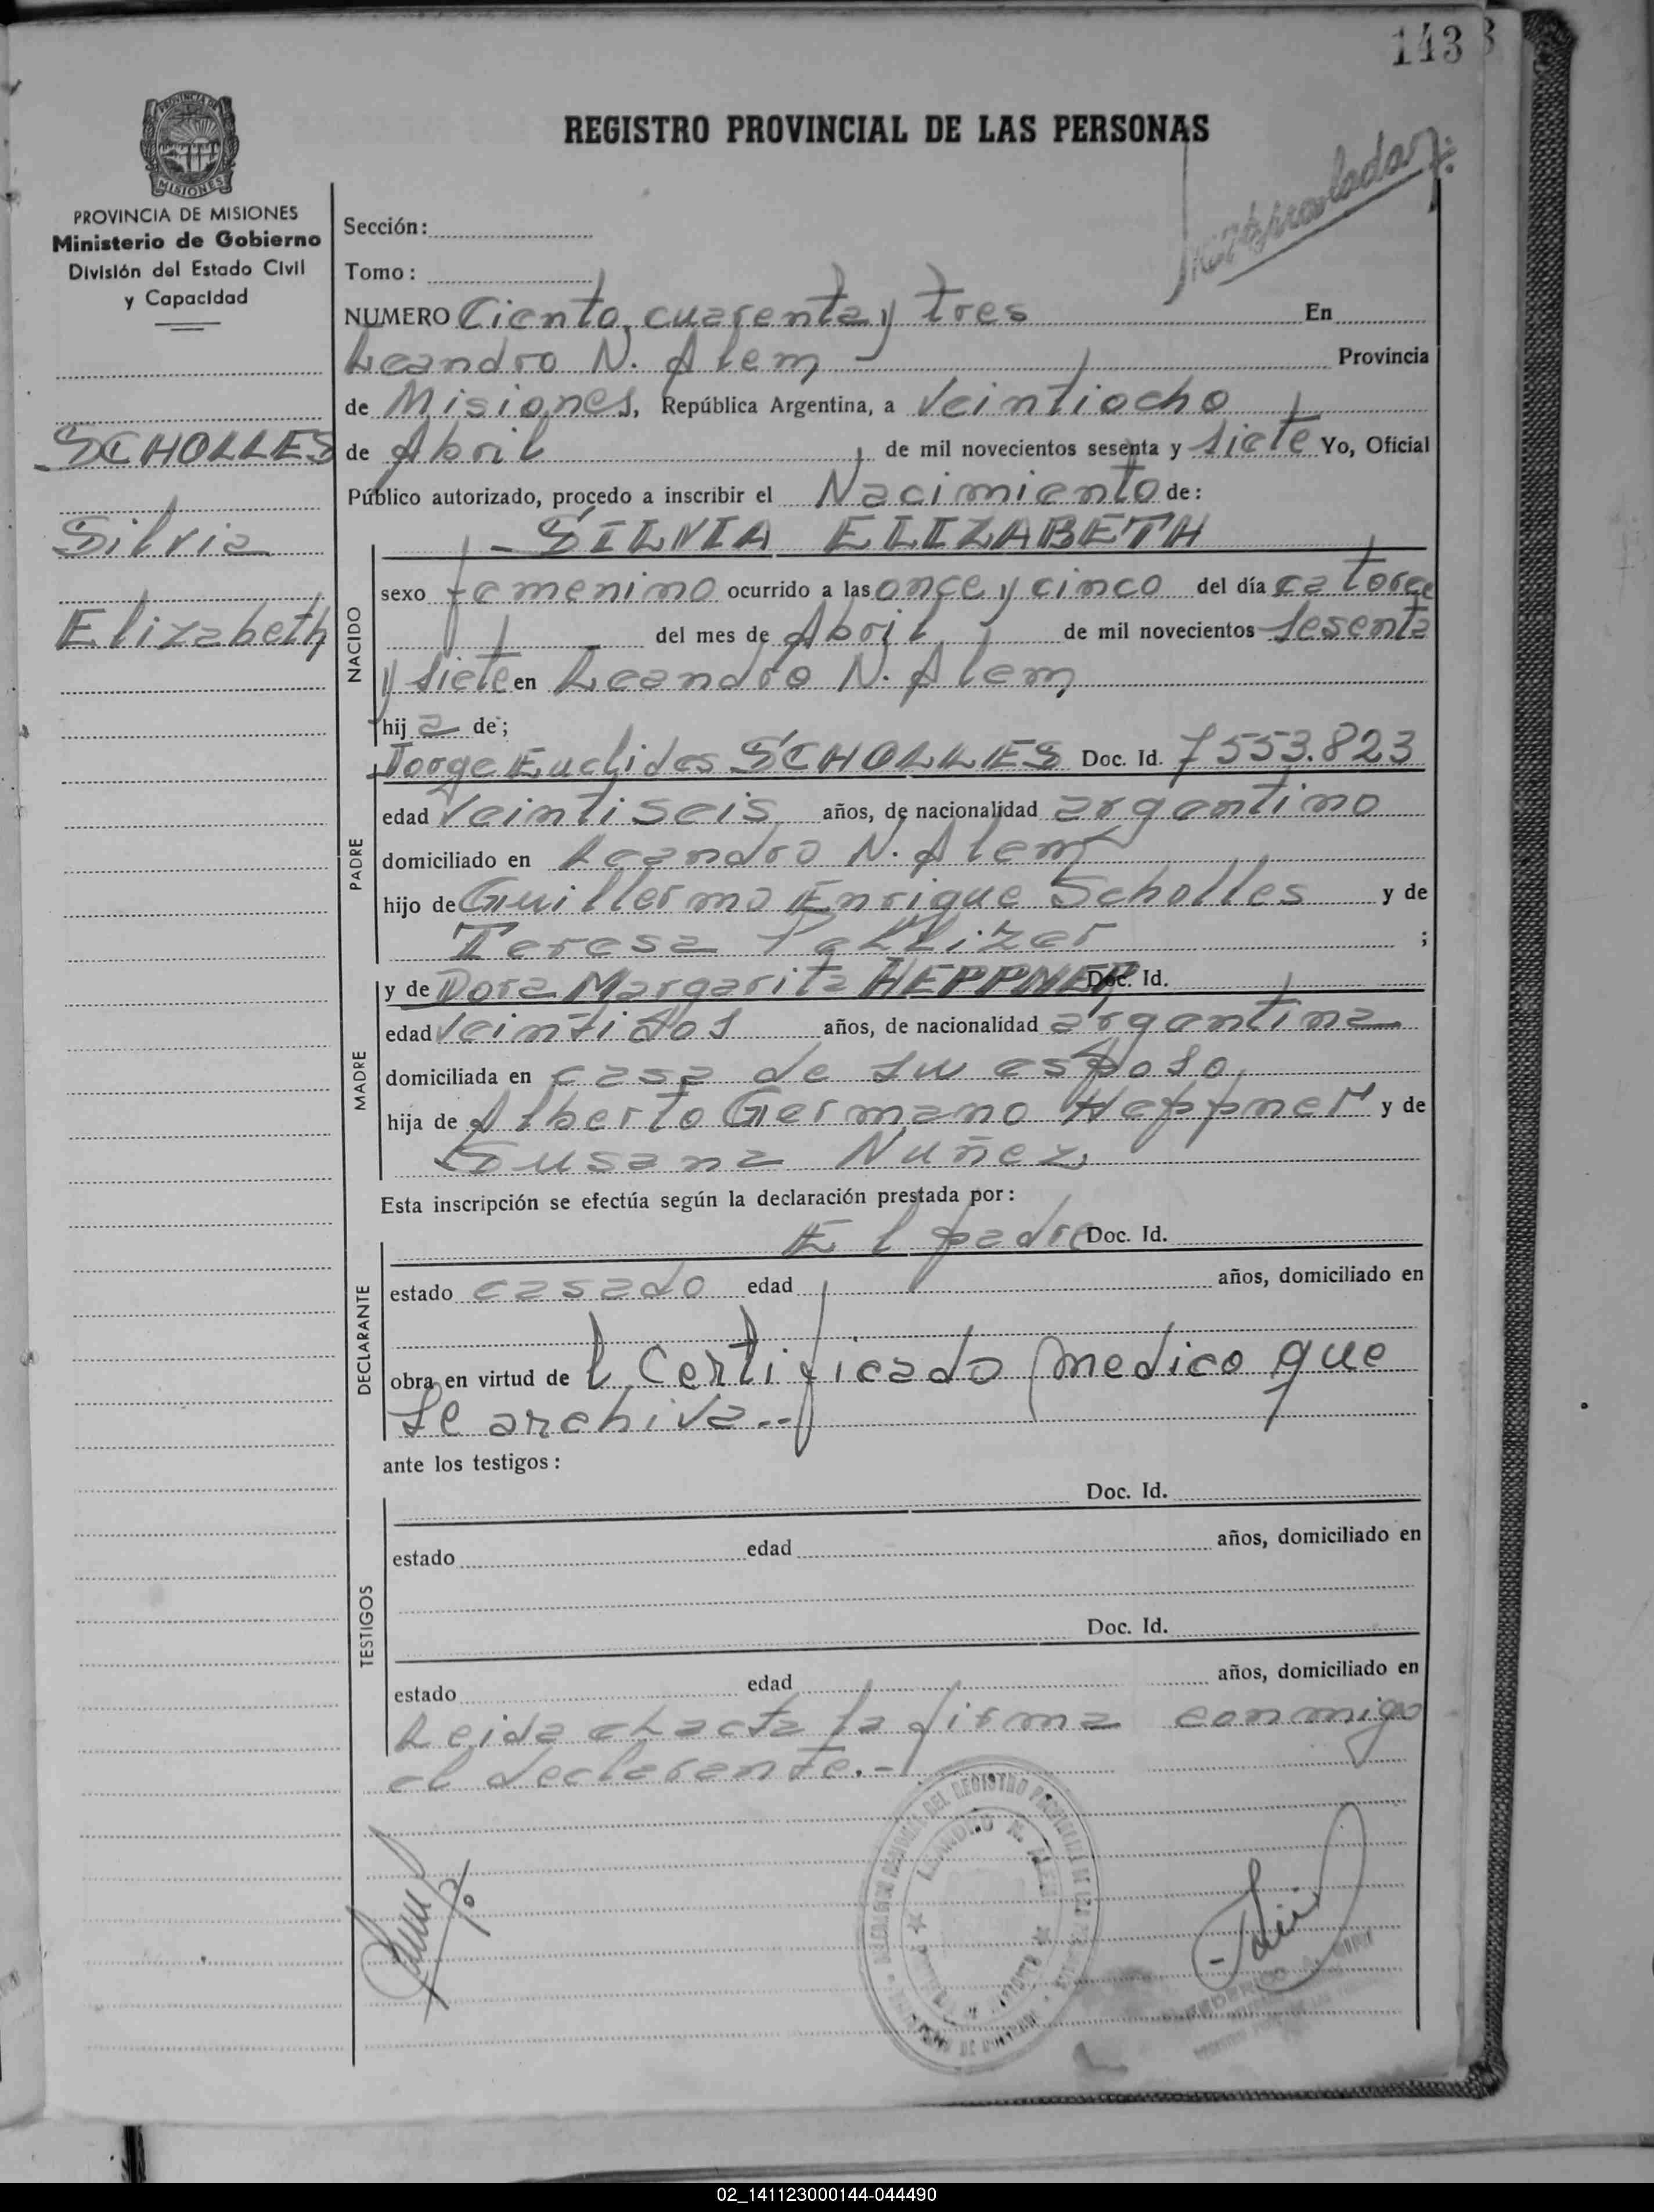 143
REGISTRO PROVINCIAL DE LAS PERSONAS
PROVINCIA DE MISIONES
Ministerio de Gobierno
División del Estado Civil
y Capacidad
SCHOLLES
Silvia
Elizabeth
Sección:
Tomo:
NUMERO Ciento, cuarenta y tres En
Leandro N. Alem Provincia
de Misiones, República Argentina, a Veintiocho
de Abril de mil novecientos sesenta y siete Yo, Oficial
Público autorizado, procedo a inscribir el Nacimiento de:
SILVIA ELIZABETH
NACIDO
sexo femenino ocurrido a las once y cinco del día catorce
del mes de Abril de mil novecientos sesenta
y siete en Leandro N. Alem
hij a de;
PADRE
Jorge Euclides SCHOLLES Doc. Id. 7553.823
edad Veintiseis años, de nacionalidad argentino
domiciliado en Leandro N. Alem
hijo de Guillermo Enrique Scholles y de
Teresa Pellizer ;
MADRE
y de Dora Margarita HEPPNER Doc. Id.
edad Veintidos años, de nacionalidad argentina
domiciliada en casa de su esposo
hija de Alberto Germano Heppner y de
Susana Nuñez
Esta inscripción se efectúa según la declaración prestada por:
DECLARANTE
El padre Doc. Id.
estado casado edad años, domiciliado en
obra en virtud de l Certificado medico que
se archiva.--
ante los testigos:
TESTIGOS
Doc. Id.
estado edad años, domiciliado en
Doc. Id.
estado edad años, domiciliado en
Leida el acta la firma conmigo
el declarante.-
LEANDRO N. ALEM
02_141123000144-044490